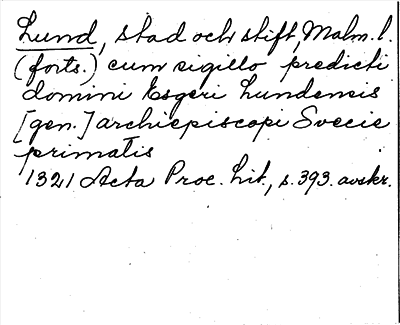 Lund, stad och stift, Malm. l.
(forts.) cum sigillo predicti
domini Esgeri Lundensis
[gen.] archiepiscopi Svecie
primatis
1321 Acta Proc. Lit., s. 393. avskr.